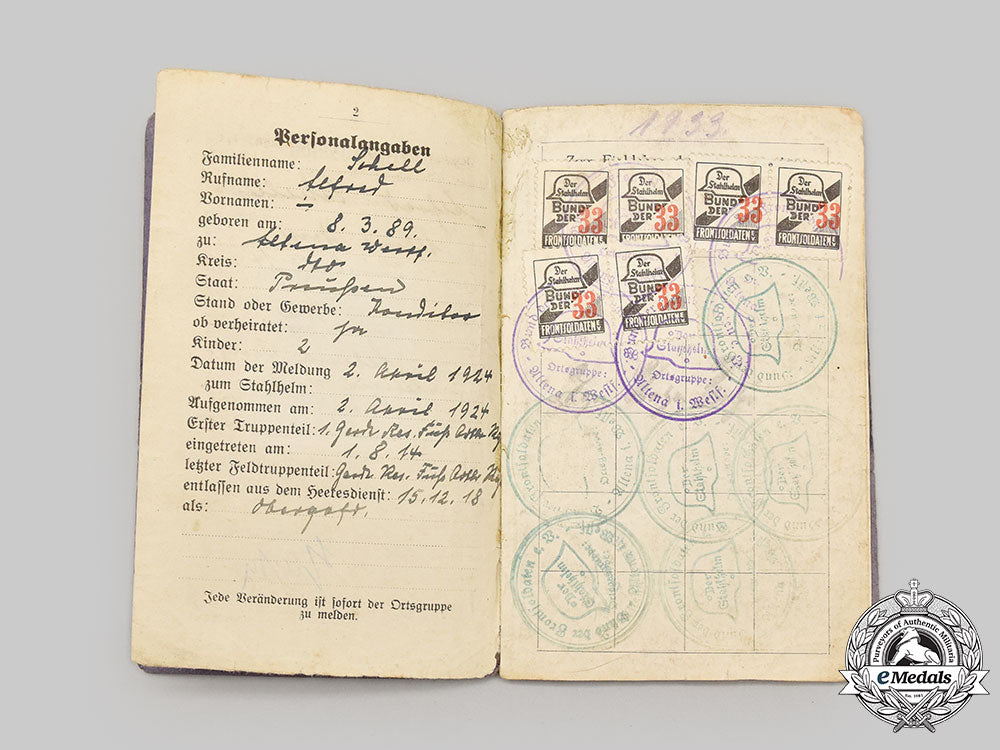 2
Personalangaben
Familienname: Schell
Rufname: Alfred
Vornamen:
geboren am: 8. 3. 89.
zu: Altena Westf.
Kreis: dto
Staat: Preußen
Stand oder Gewerbe: Konditor
ob verheiratet: ja
Kinder: 2
Datum der Meldung 2. April 1924
zum Stahlhelm:
Aufgenommen am: 2. April 1924
Erster Truppenteil: 1. Garde Res. Fuß Artl.
eingetreten am: 1. 8. 14
letzter Feldtruppenteil: Garde Res. Fuß Artl.
entlassen aus dem Heeresdienst: 15. 12. 18
als: Obergefr.
Jede Veränderung ist sofort der Ortsgruppe
zu melden.
1933
Der Stahlhelm BUND DER 33 FRONTSOLDATEN
Der Stahlhelm BUND DER 33 FRONTSOLDATEN
Der Stahlhelm BUND DER 33 FRONTSOLDATEN
Der Stahlhelm BUND DER 33 FRONTSOLDATEN
Der Stahlhelm BUND DER 33 FRONTSOLDATEN
Der Stahlhelm BUND DER 33 FRONTSOLDATEN
Ortsgruppe:
Altena i. Westf.
Der Stahlhelm
Ortsgruppe:
Altena i. Westf.
Bund der Frontsoldaten e. V.
Der Stahlhelm
Purveyors of Authentic Militaria
eMedals